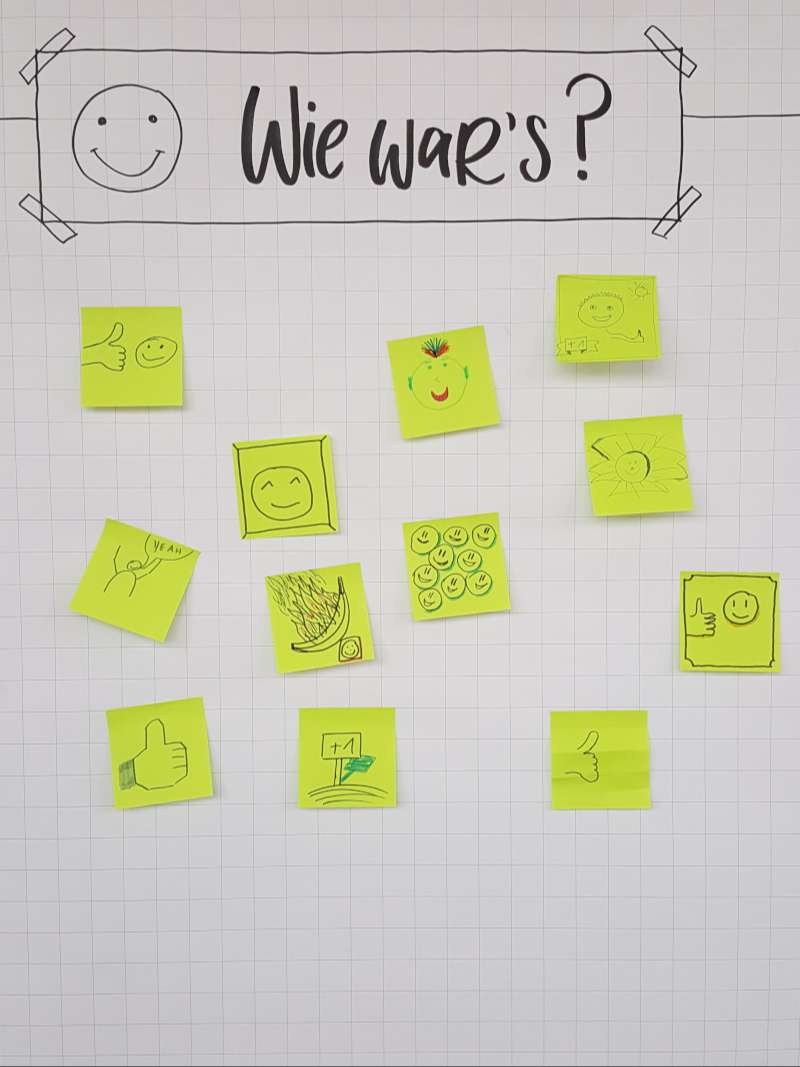 Wie war's?
+1
YEAH
+1